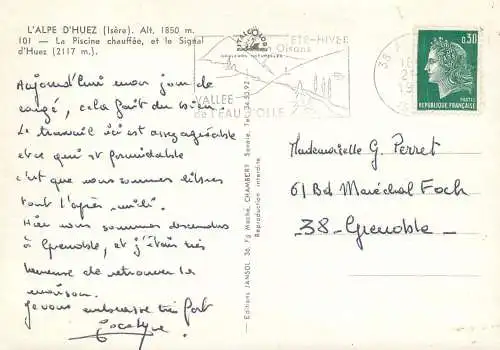 L'ALPE D'HUEZ (Isère). Alt. 1850 m.
101 - La Piscine chauffée, et le Signal
d'Huez (2117 m.).
Aujourd'hui mon jour de
congé, cela fait du bien.
Le travail ici est assez agréable
et ce qui est formidable
c'est que nous sommes libres
tout l'après-midi.
Hier nous sommes descendus
à Grenoble, et j'étais très
heureuse de retrouver la
maison.
Je vous embrasse très fort
Jocelyne
— Editions JANSOL, 36, Fg Maché, CHAMBERY Savoie. Tél. 34.55.92
Reproduction interdite.
ÉTÉ-HIVER
en Oisans
VALLEE
de L'EAU D'OLLE
38
18
21
19
0,30
POSTES
REPUBLIQUE FRANÇAISE
Mademoiselle G. Perret
61 Bd Maréchal Foch
38 - Grenoble -